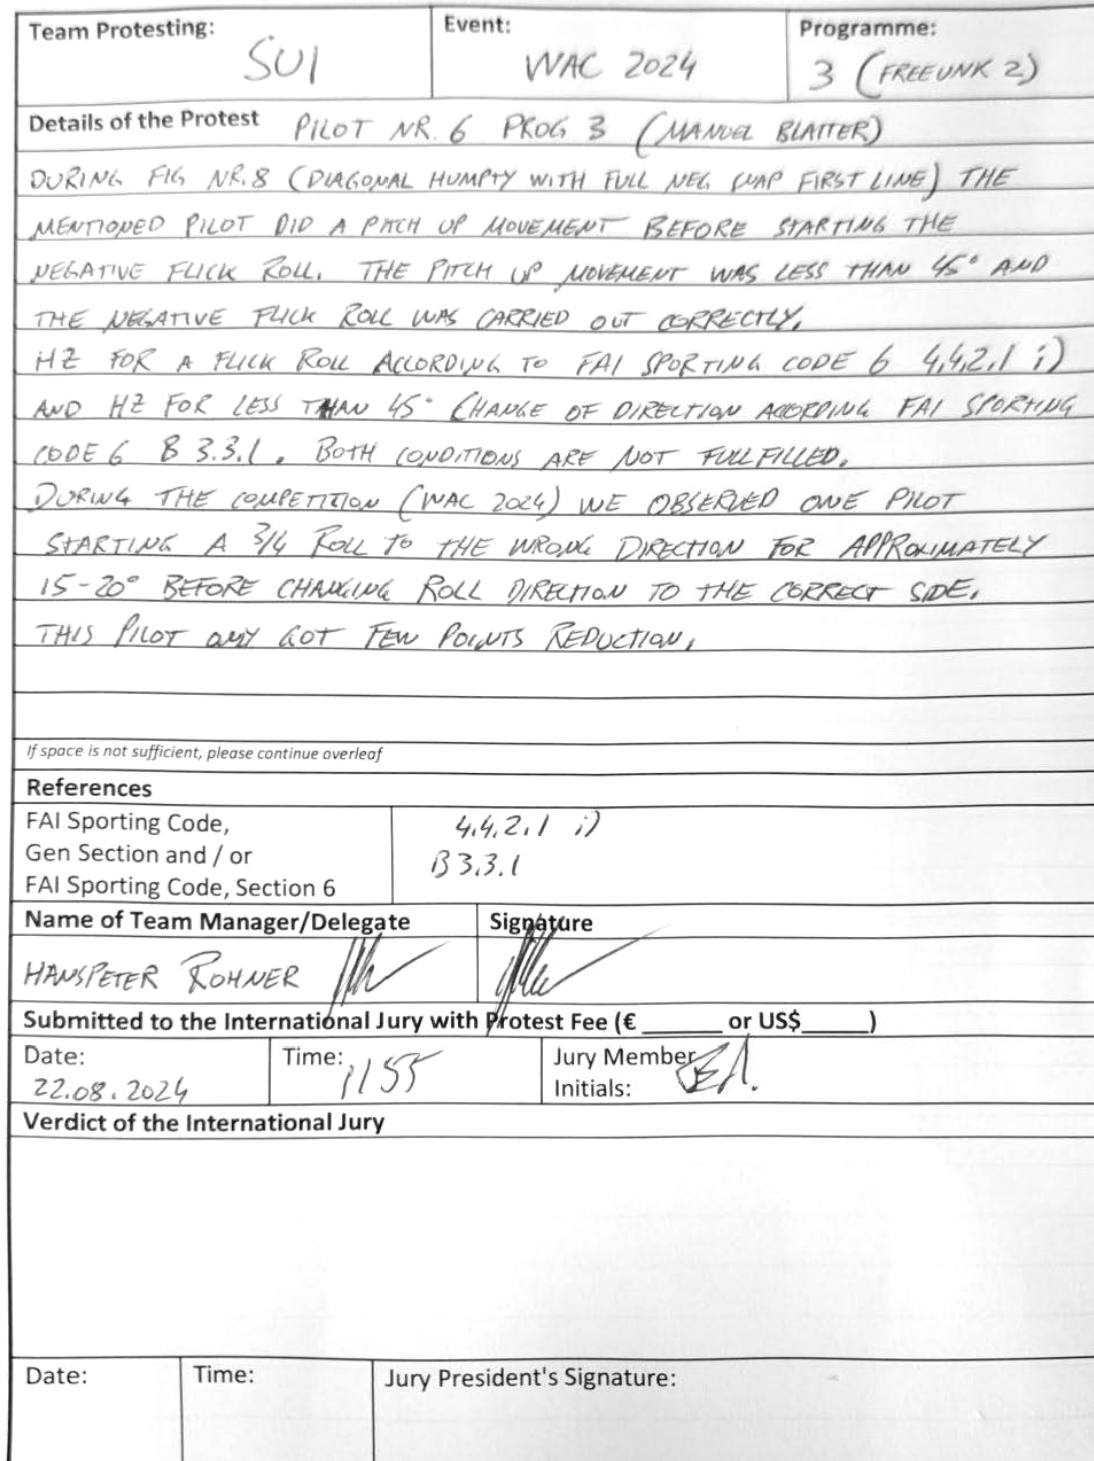 Team Protesting: SUI
Event: WAC 2024
Programme: 3 (FREEUNK 2)
Details of the Protest PILOT NR. 6 PROG 3 (MANUEL BLATTER)
DURING FIG NR. 8 (DIAGONAL HUMPTY WITH FULL NEG SNAP FIRST LINE) THE
MENTIONED PILOT DID A PITCH UP MOVEMENT BEFORE STARTING THE
NEGATIVE FLICK ROLL. THE PITCH UP MOVEMENT WAS LESS THAN 45° AND
THE NEGATIVE FLICK ROLL WAS CARRIED OUT CORRECTLY.
HZ FOR A FLICK ROLL ACCORDING TO FAI SPORTING CODE 6 4.4.2.1 i)
AND HZ FOR LESS THAN 45° CHANGE OF DIRECTION ACCORDING FAI SPORTING
CODE 6 B 3.3.1. BOTH CONDITIONS ARE NOT FULLFILLED.
DURING THE COMPETITION (WAC 2024) WE OBSERVED ONE PILOT
STARTING A 3/4 ROLL TO THE WRONG DIRECTION FOR APPROXIMATELY
15-20° BEFORE CHANGING ROLL DIRECTION TO THE CORRECT SIDE.
THIS PILOT ONLY GOT FEW POINTS REDUCTION.
If space is not sufficient, please continue overleaf
References
FAI Sporting Code,
Gen Section and / or
FAI Sporting Code, Section 6
4.4.2.1 i)
B 3.3.1
Name of Team Manager/Delegate
Signature
HANSPETER ROHNER
Submitted to the International Jury with Protest Fee (€ ______ or US$_____)
Date:
22.08.2024
Time: 1155
Jury Member
Initials:
Verdict of the International Jury
Date:
Time:
Jury President's Signature: